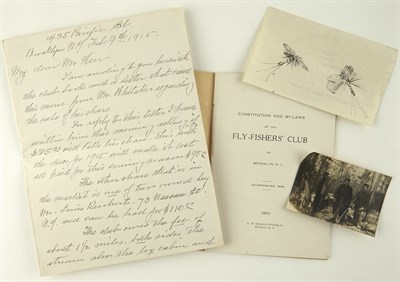 1435 Pacific St.
Brooklyn N.Y. Feb 9th, 1915.
My dear Mr. Weir
I am sending to you herewith
the club book and a letter that came
this morn from Mr. Whitaker regarding
the sale of his share.
In reply to his letter I have
written him this morning asking if
$85.00 will take his share. This with
the dues for 1915 will make it cost
The other share that is in
the market is one of two owned by
Mr. Louis Reinhardt, 73 Nassau St.
N.Y. and can be had for $110.00
The club owns the fee of
about 1 1/2 miles, both sides, the
stream also the log cabin and
CONSTITUTION AND BY-LAWS
OF THE
FLY-FISHERS' CLUB
OF
BROOKLYN, N. Y.